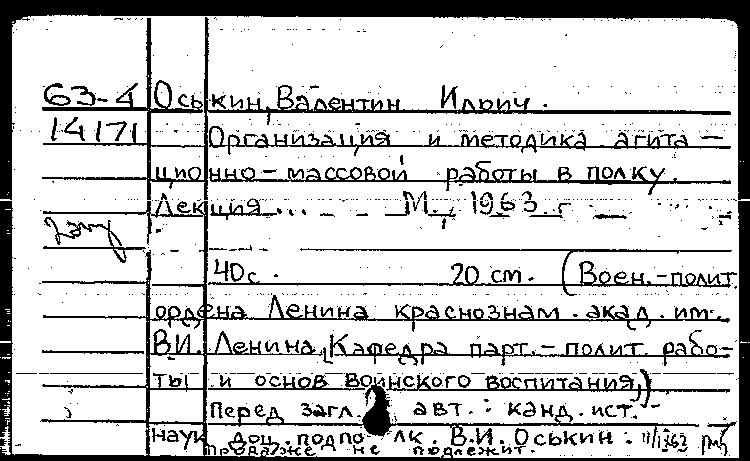 63-4 Оськин, Валентин Ильич.
14171 Организация и методика агита-
ционно-массовой работы в полку.
Лекция... М., 1963 г
40с. 20 см. (Воен.-полит
ордена Ленина краснознам. акад. им.
В.И. Ленина, Кафедра парт.-полит. рабо-
ты и основ воинского воспитания,)
Перед загл. авт.: канд. ист.
наук доц. подполк. В.И. Оськин.
продаже не подлежит.